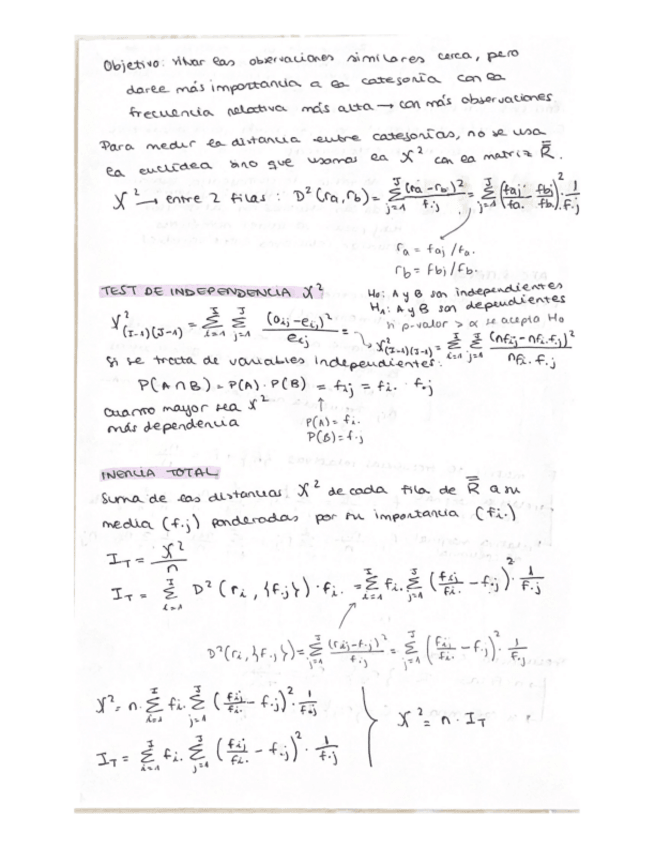 Objetivo: situar las observaciones similares cerca, pero
darle más importancia a la categoría con la
frecuencia relativa más alta → con más observaciones
Para medir la distancia entre categorías, no se usa
la euclídea sino que usamos la X² con la matriz R̿.
X² → entre 2 filas: D²(ra, rb) = Σ_{j=1}^{J} (ra - rb)²/f.j = Σ_{j=1}^{J} (faj/fa. - fbj/fb.)² · 1/f.j
ra = faj / fa.
rb = fbj / fb.
TEST DE INDEPENDENCIA X²
H₀: A y B son independientes
H₁: A y B son dependientes
si p-valor > α se acepta H₀
X²_{(I-1)(J-1)} = Σ_{i=1}^{I} Σ_{j=1}^{J} (oij - eij)²/eij =
↳ X²_{(I-1)(J-1)} = Σ_{i=1}^{I} Σ_{j=1}^{J} (nfij - nfi. f.j)²/nfi. f.j
Si se trata de variables independientes:
P(A∩B) = P(A) · P(B) = fij = fi. · f.j
↑
Cuanto mayor sea X²
más dependencia
P(A) = fi.
P(B) = f.j
INERCIA TOTAL
Suma de las distancias X² de cada fila de R̿ a su
media (f.j) ponderadas por su importancia (fi.)
I_T = X²/n
I_T = Σ_{i=1}^{I} D²(ri, {f.j}) · fi. = Σ_{i=1}^{I} fi. Σ_{j=1}^{J} (fij/fi. - f.j)² · 1/f.j
D²(ri, {f.j}) = Σ_{j=1}^{J} (rij - f.j)²/f.j = Σ_{j=1}^{J} (fij/fi. - f.j)² · 1/f.j
X² = n · Σ_{i=1}^{I} fi. Σ_{j=1}^{J} (fij/fi. - f.j)² · 1/f.j
X² = n · I_T
I_T = Σ_{i=1}^{I} fi. Σ_{j=1}^{J} (fij/fi. - f.j)² · 1/f.j